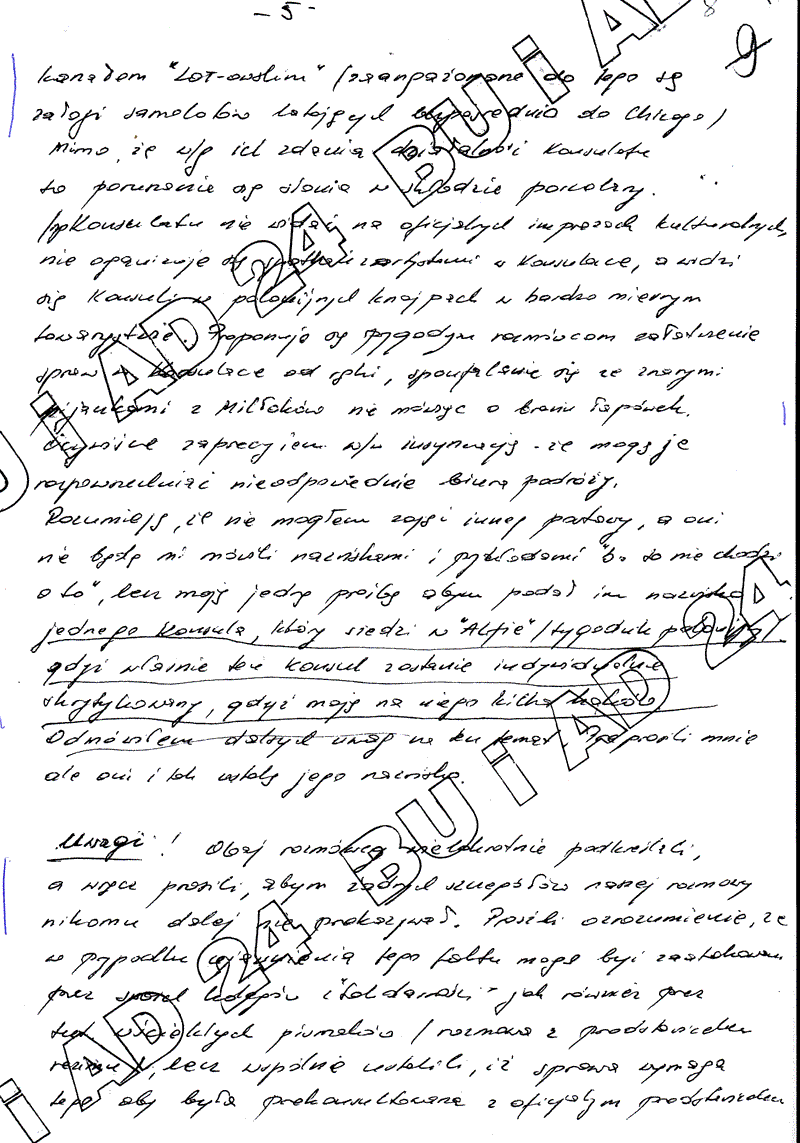 - 5 -
8
9
kanałem "LOT-owskim" /zaangażowane do tego są
załogi samolotów latających bezpośrednio do Chicago/
Mimo, że w/g ich zdania działalność Konsulatu
to poruszanie się słonia w składzie porcelany.
Konsulatu nie widać na oficjalnych imprezach kulturalnych,
nie organizuje się spotkań z artystami w Konsulacie, a widzi
się Konsulów w polonijnych knajpach w bardzo miernym
towarzystwie. Proponują się przygodnym rozmówcom załatwienie
spraw w Konsulacie od ręki, spoufalanie się ze znanymi
pijaczkami z Milwoków nie mówiąc o braniu łapówek.
Oczywiście zaprzeczyłem w/w insynuacją - że mogą je
rozpowszechniać nieodpowiednie biura podróży.
Rozumieją, że nie mogłem zająć innej postawy, a oni
nie będą mi mówili nazwiskami i przykładami "bo to nie chodzi
o to", lecz mają jedną prośbę abym podał im nazwisko
jednego Konsula, który siedzi w "Alfie" /tygodnik polonijny/
gdyż właśnie ten konsul zostanie indywidualnie
skrytykowany, gdyż mają na niego kilka
Odmówiłem dalszych uwag na ten temat. Przeprosili mnie
ale oni i tak ustalą jego nazwisko.
Uwagi! Obaj rozmówcy wielokrotnie podkreślali,
a wręcz prosili, abym żadnych szczegółów naszej rozmowy
nikomu dalej nie przekazywał. Prosili o zrozumienie, że
w przypadku ujawnienia tego faktu mogą być zaatakowani
przez swoich kolegów z "Solidarności" jak również przez
tych wściekłych pismaków /rozmowa z przedstawicielem
reżimu/, lecz wspólnie ustalili, iż sprawa wymaga
tego aby była prekonsultowana z oficjalnym przedstawicielem
BU i AD 24
BU i AD 24
BU i AD 24
BU i AD 24